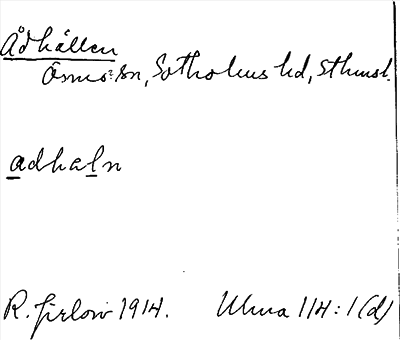 Ådhällen
Ösmo sn, Sotholms hd, Sthmsl.
adhaln
R. Jirlow 1914. Ulma 114:1 (d)